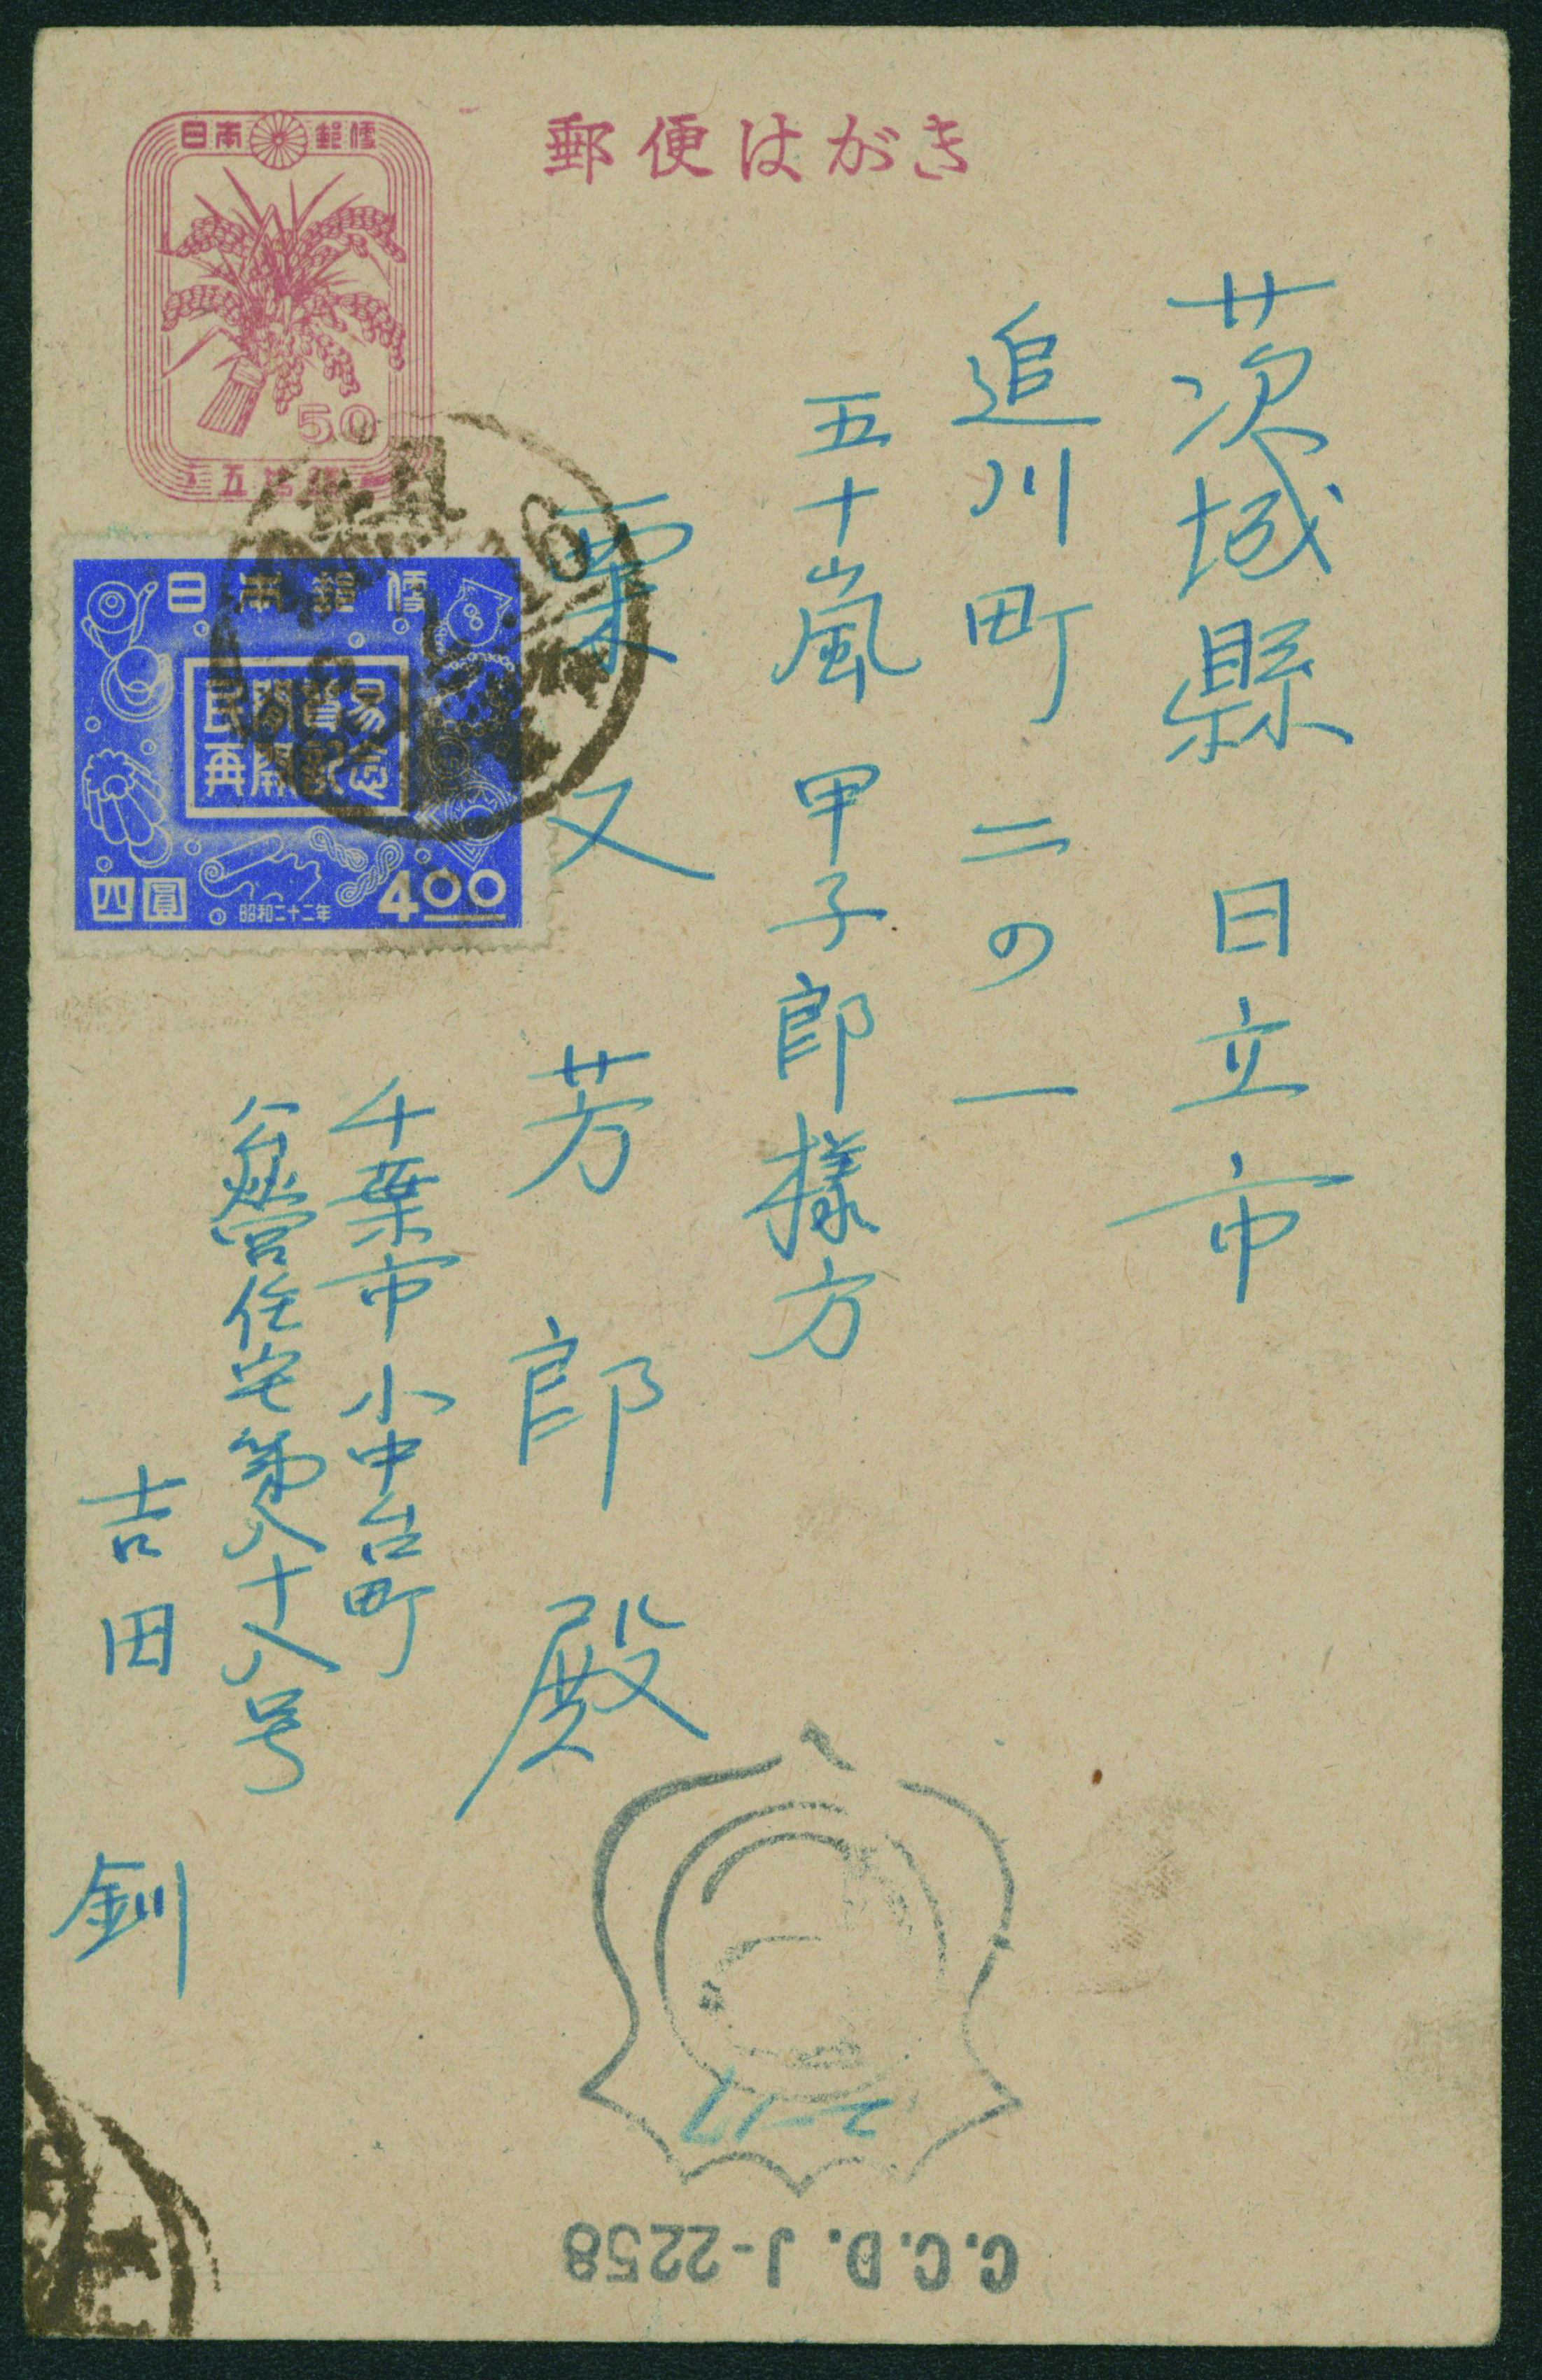 郵便はがき
日本郵便
50
五拾銭
日本郵便
民間貿易
再開記念
四圓
昭和二十二年
400
茨城縣 日立市
追川町 二の一
五十嵐 甲子郎様方
粟又 芳郎 殿
千葉市 小中台町
營住宅 第八十八号
吉田 釧
C.C.D. J-2258